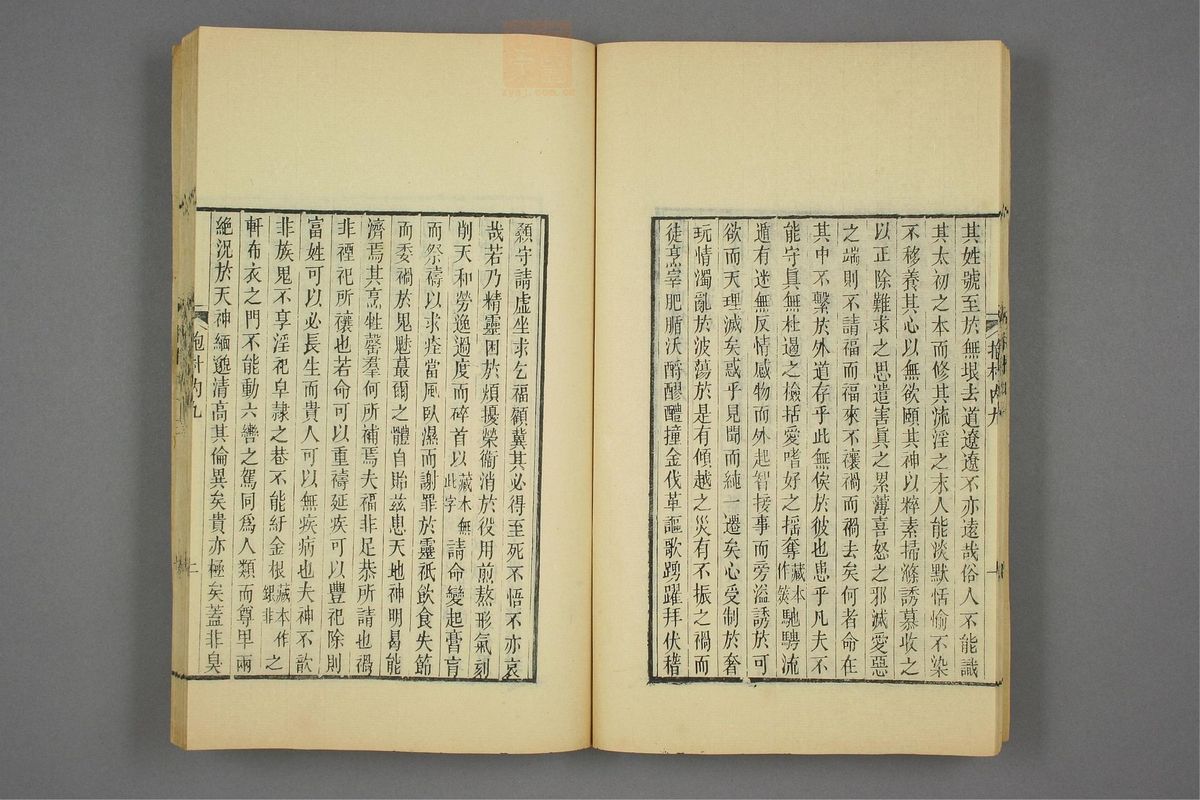 其姓號至於無垠去道遼遼不亦遠哉俗人不能識
其太初之本而修其流淫之末人能淡默恬愉不染
不移養其心以無欲頤其神以粹素掃滌誘慕收之
以正除難求之思遣害真之累薄喜怒之邪滅愛惡
之端則不請福而福來不禳禍而禍去矣何者命在
其中不繫於外道存乎此無俟於彼也患乎凡夫不
能守真無杜遏之檢括愛嗜好之搖奪藏本作䇿馳騁流
遁有迷無反情感物而外起智接事而旁溢誘於可
欲而天理滅矣惑乎見聞而純一遷矣心受制於奢
玩情濁亂於波蕩於是有傾越之災有不振之禍而
徒烹宰肥腯沃酹醪醴撞金伐革謳歌踴躍拜伏稽
顙守請虛坐求乞福願冀其必得至死不悟不亦哀
哉若乃精靈困於煩擾榮衞消於役用煎熬形氣刻
削天和勞逸過度而碎首以藏本無此字請命變起膏肓
而祭禱以求痊當風臥濕而謝罪於靈祇飲食失節
而委禍於鬼魅蕞爾之體自貽茲患天地神明曷能
濟焉其烹牲罄羣何所補焉夫福非足恭所請也禍
非禋祀所禳也若命可以重禱延疾可以豐祀除則
富姓可以必長生而貴人可以無疾病也夫神不歆
非族鬼不享淫祀皁隸之巷不能紆金根藏本作銀非之
軒布衣之門不能動六轡之駕同爲人類而尊卑兩
絶況於天神緬邈清高其倫異矣貴亦極矣蓋非臭
抱朴內九